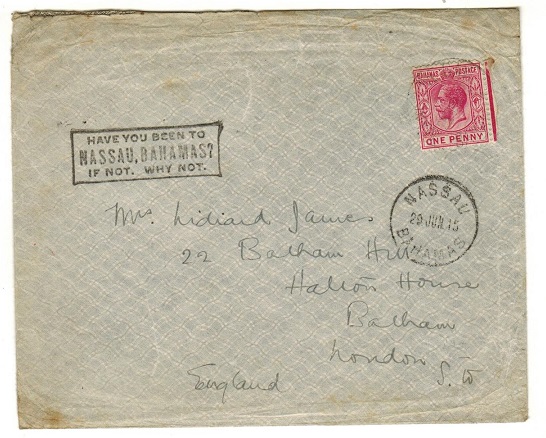 BAHAMAS POSTAGE
ONE PENNY
HAVE YOU BEEN TO
NASSAU, BAHAMAS?
IF NOT. WHY NOT.
NASSAU
29 JUN 15
BAHAMAS
Mrs. Lidiard James
22 Balham Hill
Halton House
Balham
London
S. W
England